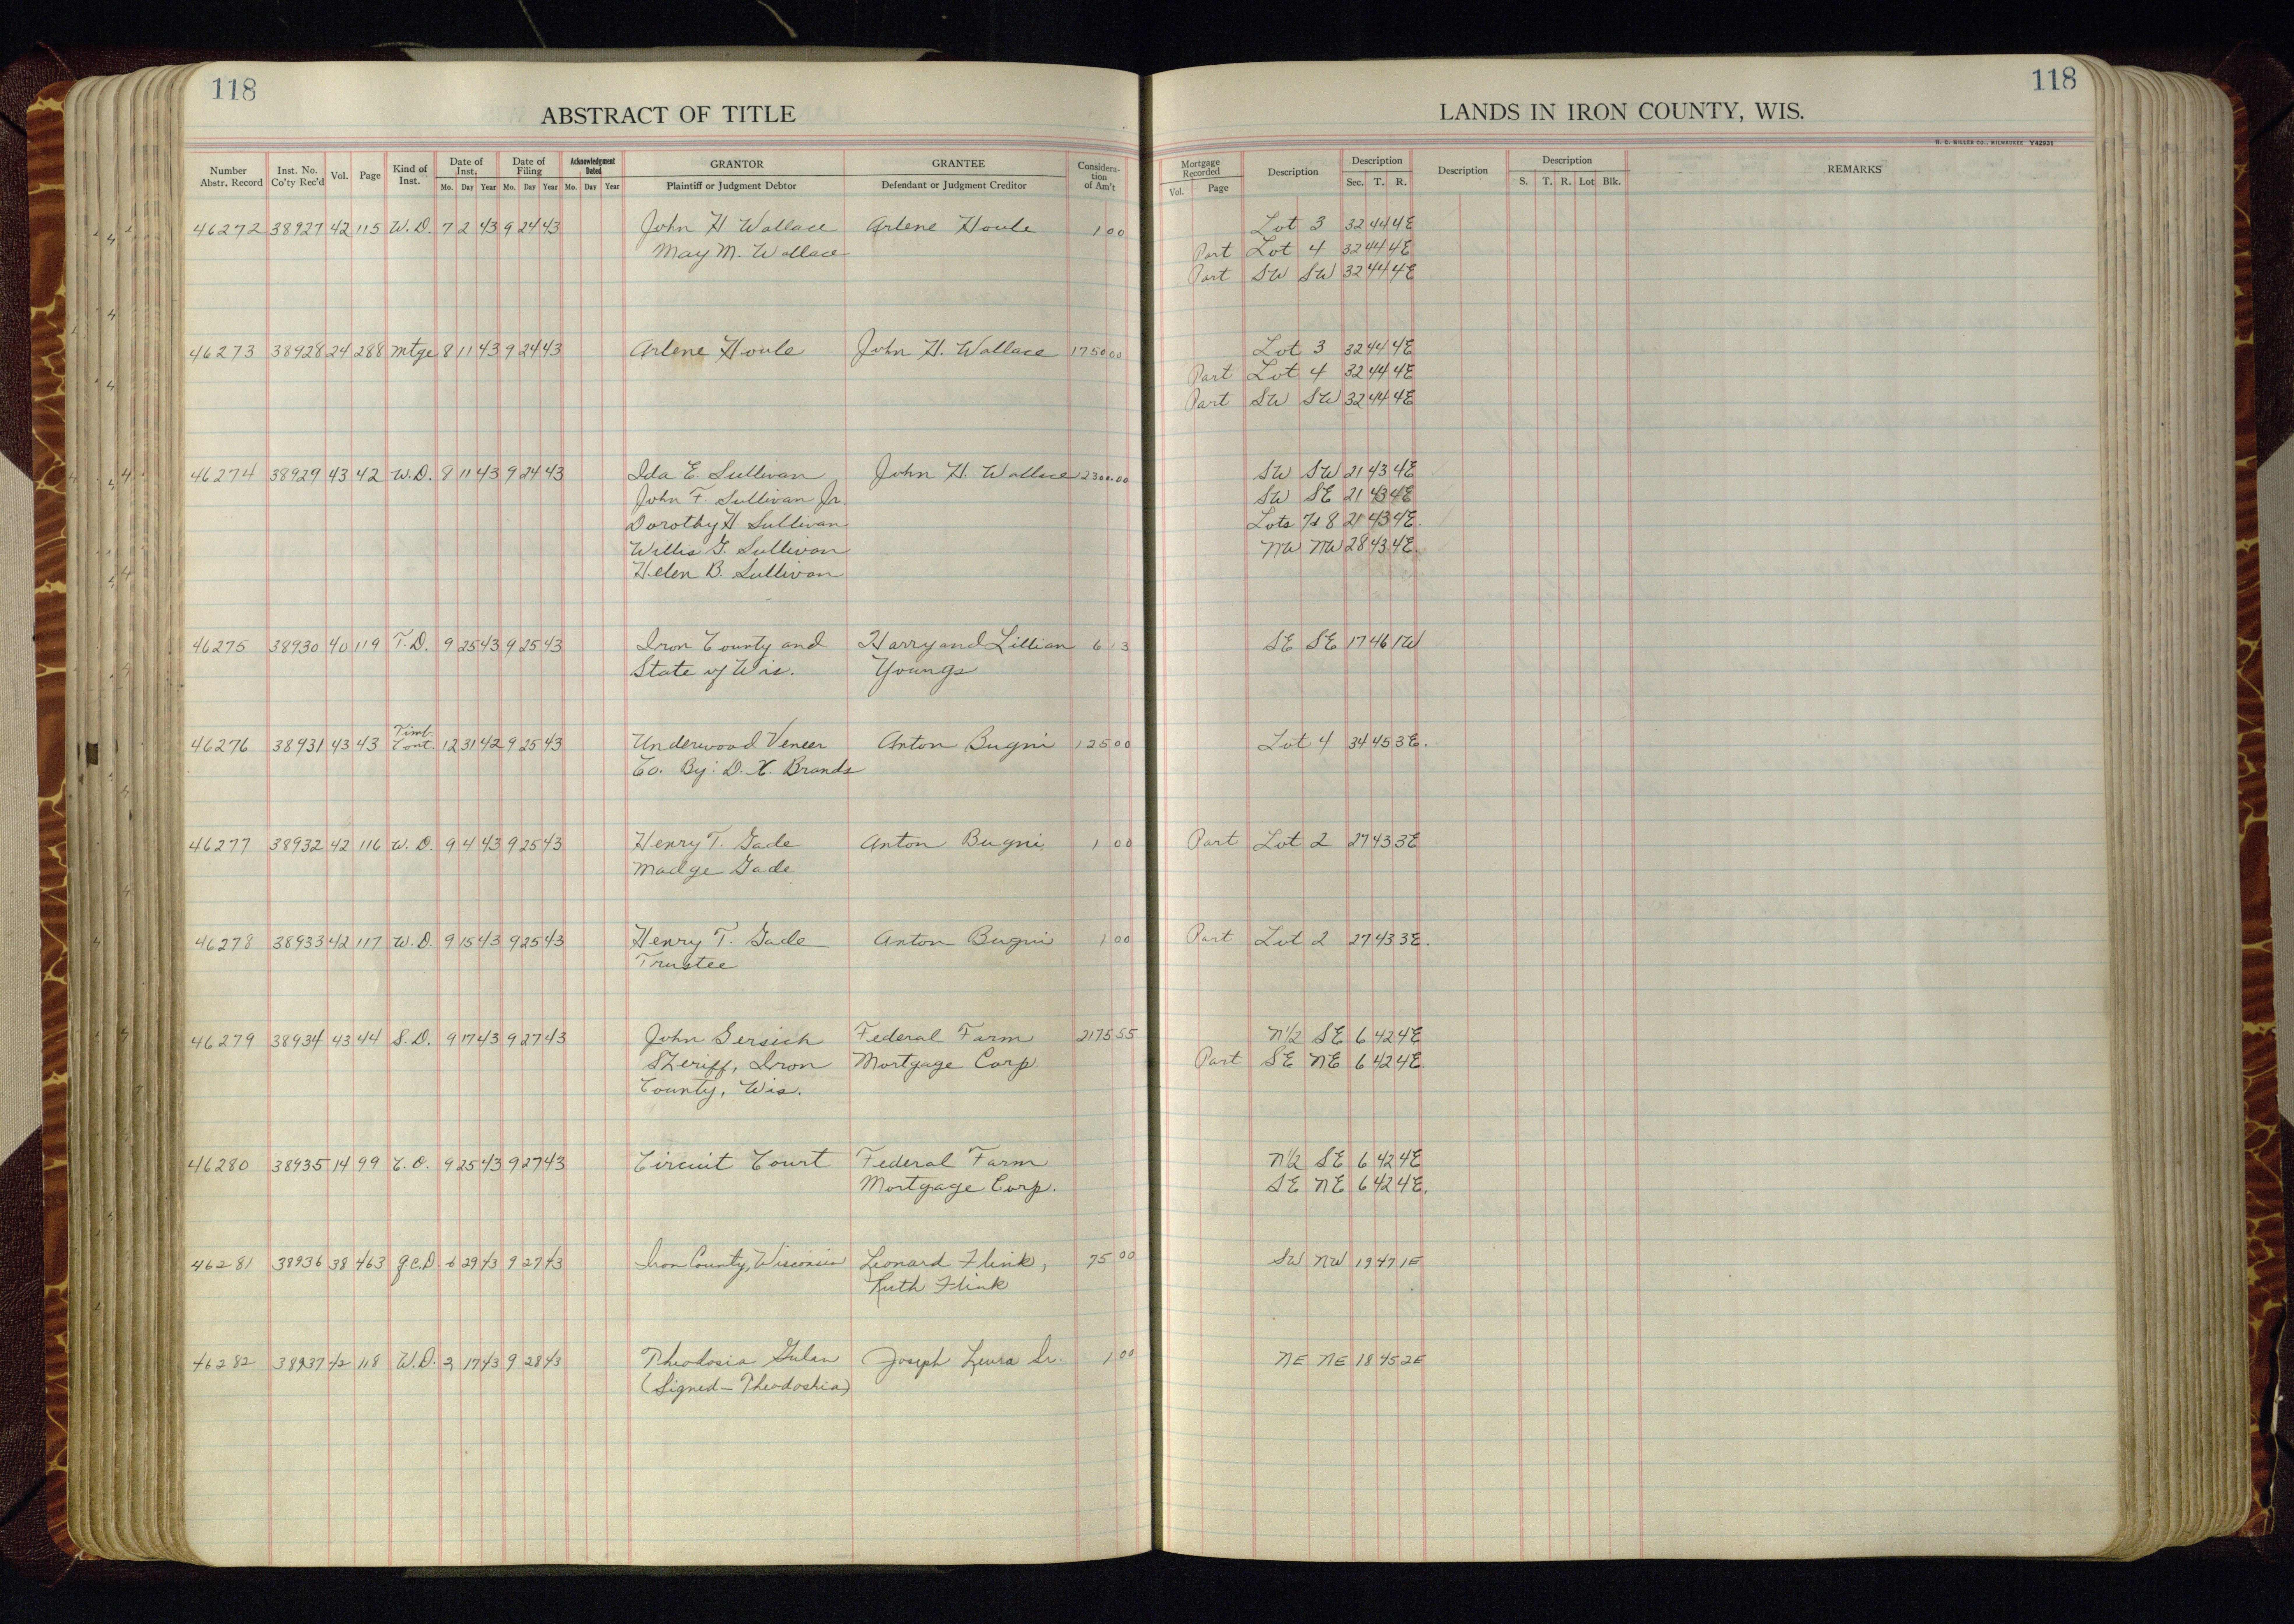 118
118
ABSTRACT OF TITLE
LANDS IN IRON COUNTY, WIS.
H. C. MILLER CO., MILWAUKEE Y42931
Number Abstr. Record Inst. No. Co'ty Rec'd Vol. Page Kind of Inst. Date of Inst. Mo. Day Year Date of Filing Mo. Day Year Acknowledgment Dated Mo. Day Year GRANTOR Plaintiff or Judgment Debtor GRANTEE Defendant or Judgment Creditor Consideration of Am't Mortgage Recorded Vol. Page Description Description Sec. T. R. Description Description S. T. R. Lot Blk. REMARKS
46272 38927 42 115 W.D. 7 2 43 9 24 43 John H Wallace Arlene Houle 1 00 Lot 3 32 44 4E
May M. Wallace Part Lot 4 32 44 4E
Part SW SW 32 44 4E
46273 38928 24 288 Mtge 8 11 43 9 24 43 Arlene Houle John H. Wallace 1750 00 Lot 3 32 44 4E
Part Lot 4 32 44 4E
Part SW SW 32 44 4E
46274 38929 43 42 W.D. 8 11 43 9 24 43 Ida E. Sullivan John H. Wallace 2300.00 SW SW 21 43 4E
John F. Sullivan Jr. SW SE 21 43 4E
Dorothy H. Sullivan Lots 7&8 21 43 4E.
Willis G. Sullivan NW NW 28 43 4E.
Helen B. Sullivan
46275 38930 40 119 T.D. 9 25 43 9 25 43 Iron County and Harry and Lillian 6 13 SE SE 17 46 1W
State of Wis. Youngs
46276 38931 43 43 Timb. Cont. 12 31 42 9 25 43 Underwood Veneer Anton Bugni 125 00 Lot 4 34 45 3E.
Co. By: D. X. Brands
46277 38932 42 116 W.D. 9 4 43 9 25 43 Henry T. Gade Anton Bugni 1 00 Part Lot 2 27 43 3E
Madge Gade
46278 38933 42 117 W.D. 9 15 43 9 25 43 Henry T. Gade Anton Bugni 1 00 Part Lot 2 27 43 3E.
Trustee
46279 38934 43 44 S.D. 9 17 43 9 27 43 John Gersich Federal Farm 2175 55 N½ SE 6 42 4E
Sheriff, Iron Mortgage Corp. Part SE NE 6 42 4E.
County, Wis.
46280 38935 14 99 C.O. 9 25 43 9 27 43 Circuit Court Federal Farm N½ SE 6 42 4E
Mortgage Corp. SE NE 6 42 4E.
46281 38936 38 463 Q.C.D. 6 29 43 9 27 43 Iron County, Wisconsin Leonard Flink, 75 00 SW NW 19 47 1E
Ruth Flink
46282 38937 42 118 W.D. 2 17 43 9 28 43 Theodosia Gulan Joseph Sr. 1 00 NE NE 18 45 2E
(Signed—Theodoshia)